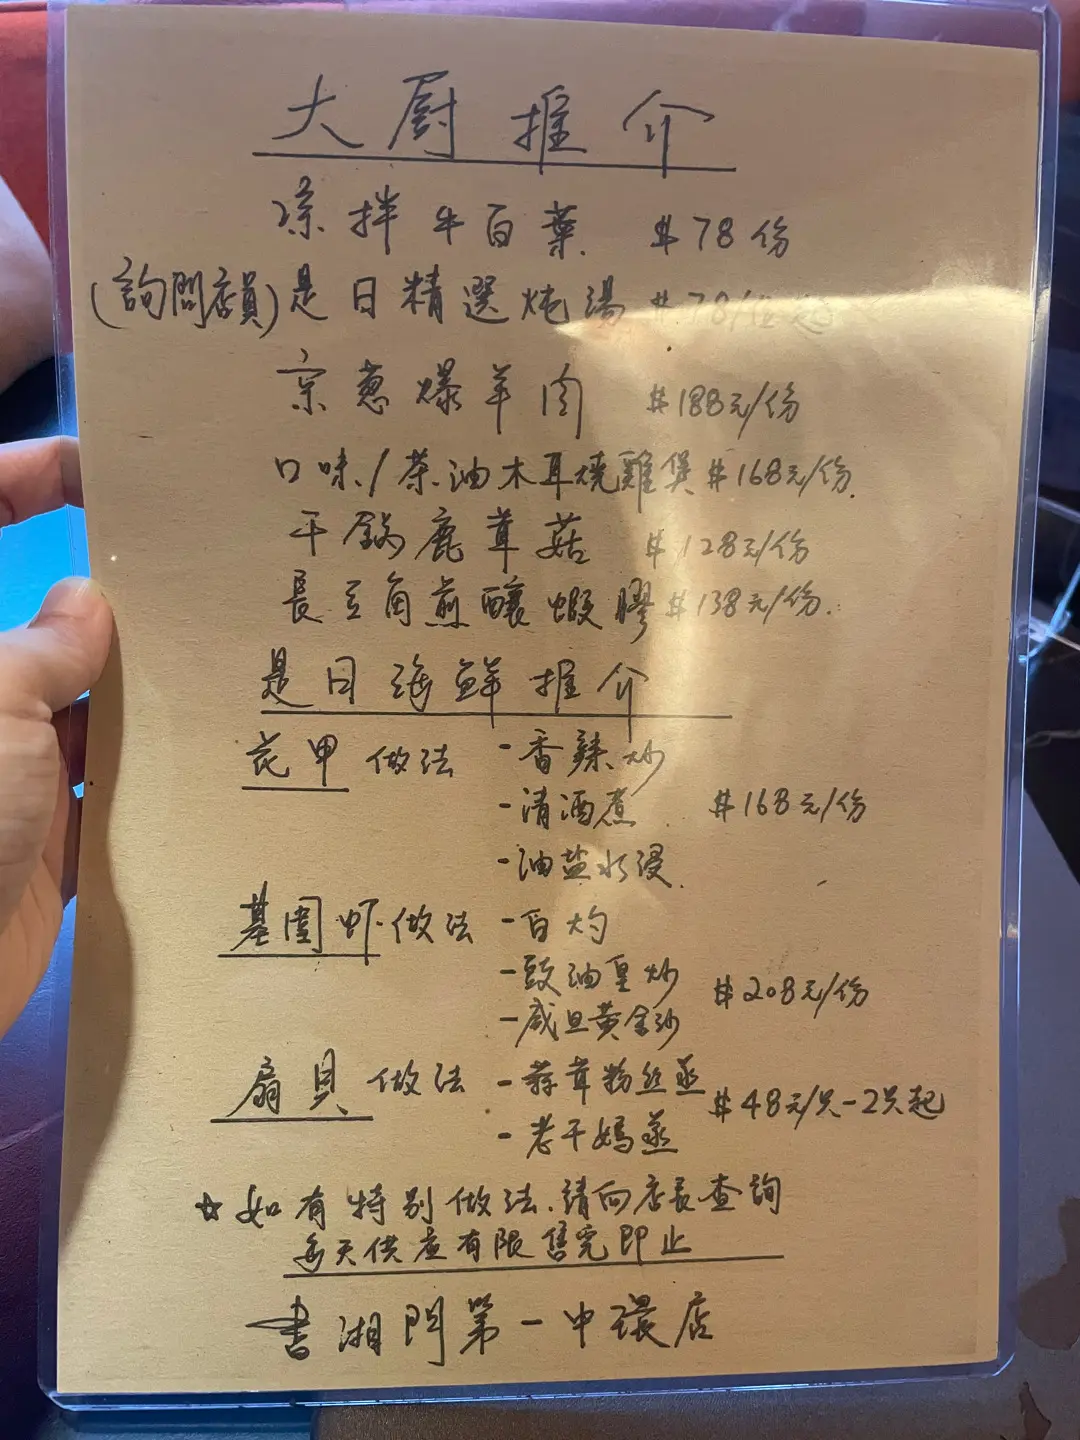 大厨推介
凉拌牛百葉 $78份
(詢問店員)是日精選炖湯 $78/位起
京葱爆羊肉 $188元/份
口味/茶油木耳燒雞煲 $168元/份
干鍋鹿茸菇 $128元/份
長豆角煎釀蝦膠 $138元/份
是日海鮮推介
花甲 做法 -香辣炒
-清酒煮 $168元/份
-油盐水浸
基圍虾 做法 -白灼
-豉油皇炒 $208元/份
-咸旦黄金沙
扇貝 做法 -蒜茸粉丝蒸 $48元/只-2只起
-老干媽蒸
☆如有特别做法.請向店長查詢
每天供應有限售完即止
書湘門第一中環店